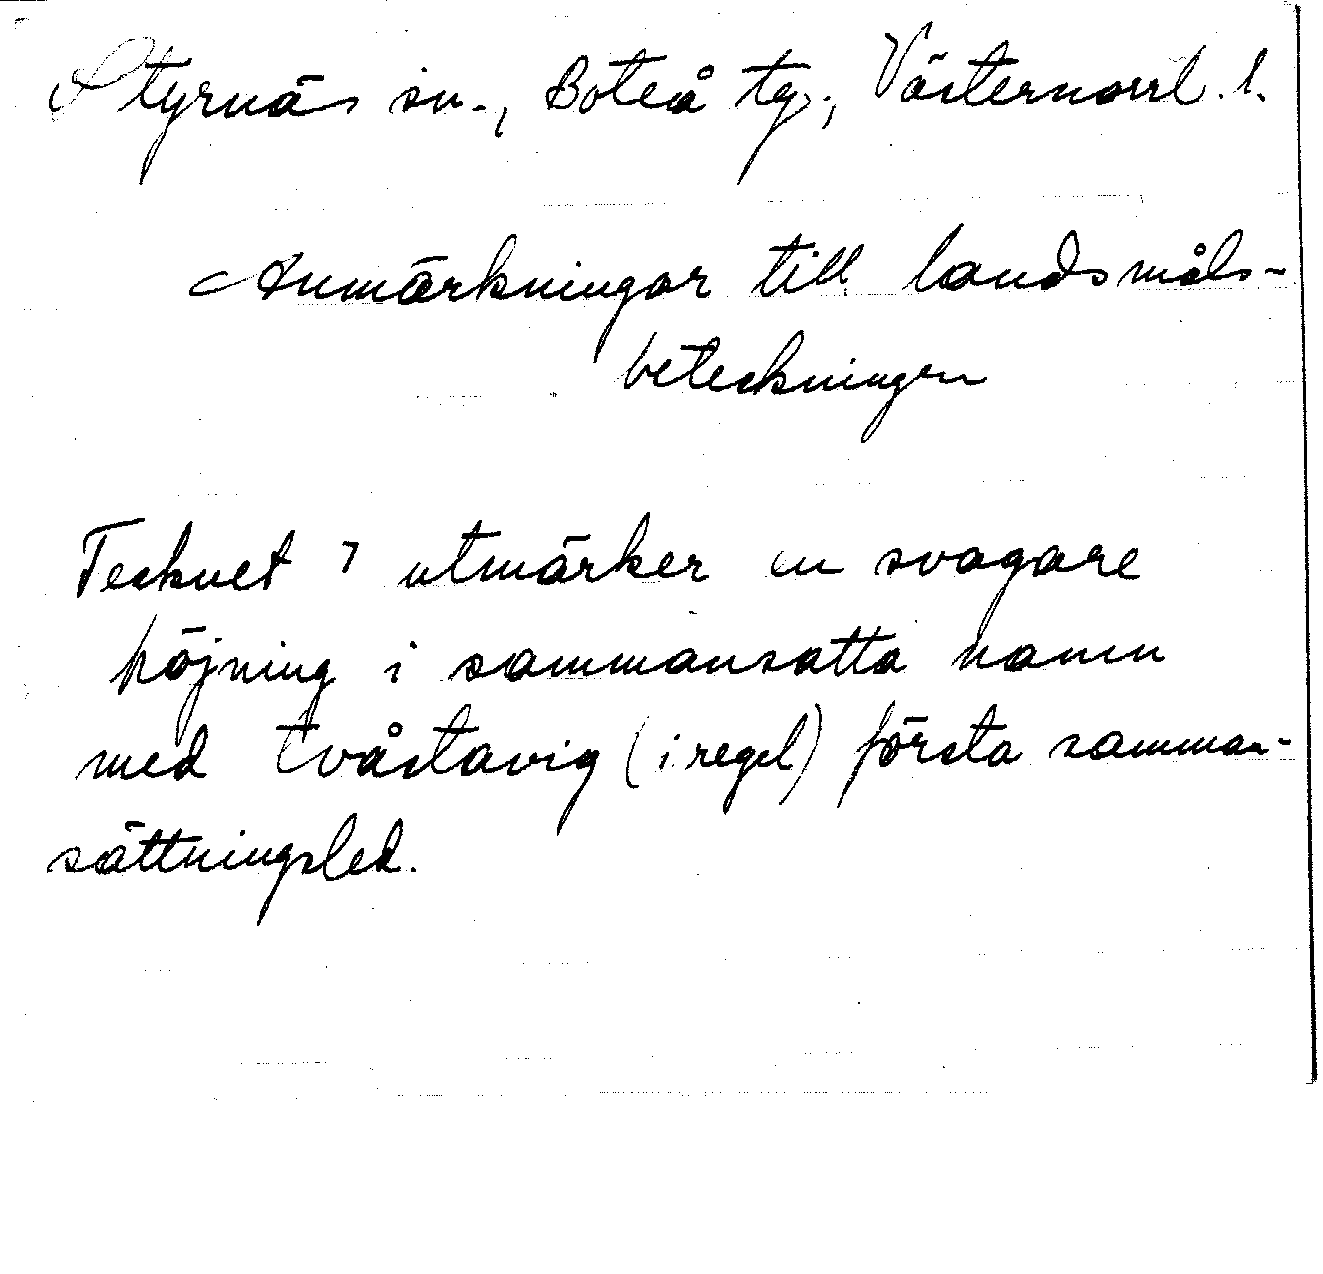 Styrnäs sn., Boteå tg., Västernorrl. l.
Anmärkningar till landsmåls-
beteckningen
Tecknet ⁊ utmärker en svagare
höjning i sammansatta namn
med tvåstavig (i regel) första samman-
sättningsled.